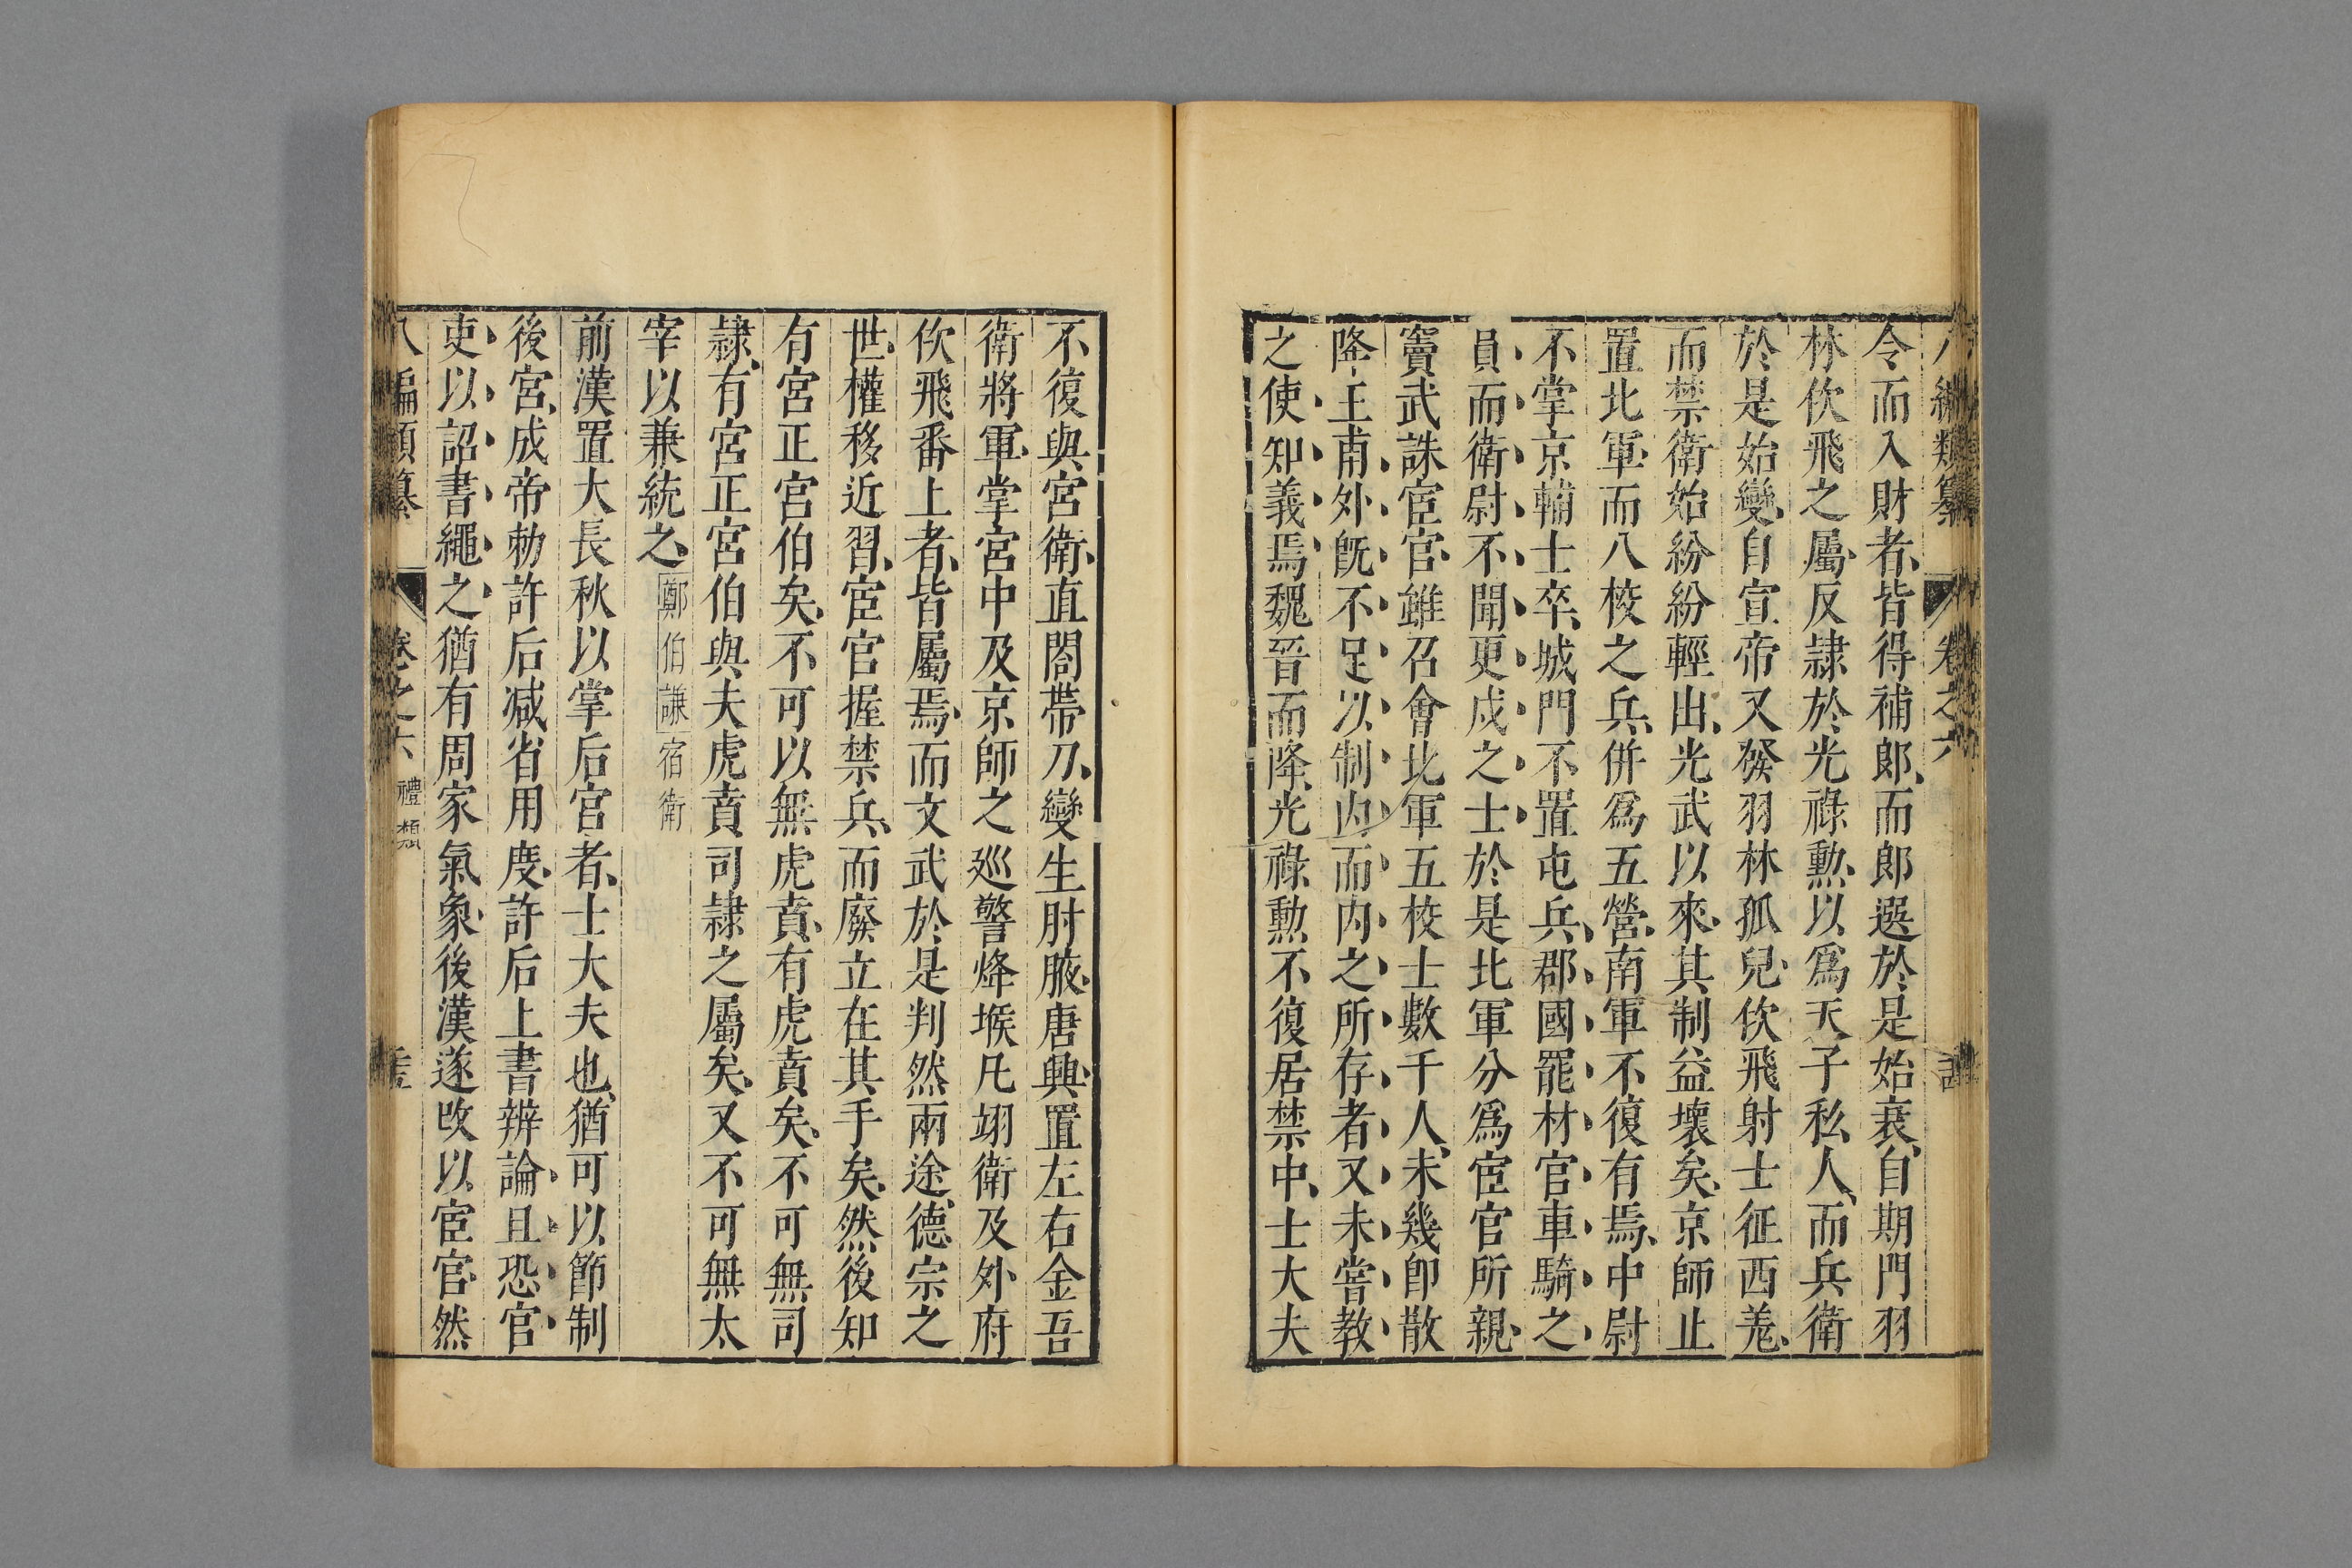 八編類纂 卷之六
令而入財者、皆得補郎、而郎選於是始衰、自期門羽
林佽飛之屬、反隷於光祿勲、以爲天子私人、而兵衛
於是始變、自宣帝又發羽林孤兒、佽飛射士征西羗、
而禁衛始紛紛輕出、光武以來、其制益壞矣、京師止
置北軍、而八校之兵、併爲五營、南軍不復有焉、中尉
不掌京輔士卒、城門不置屯兵、郡國罷材官車騎之
員、而衛尉不聞更戍之士、於是北軍分爲宦官所親、
竇武誅宦官、雖召會北軍五校士數千人、未幾卽散
降王甫、外旣不足以制内、而内之所存者、又未嘗教
之使知義焉、魏晉而降、光祿勲不復居禁中、士大夫
不復與宮衛、直閤帶刀、變生肘腋、唐興、置左右金吾
衛將軍、掌宮中及京師之廵警烽堠、凡翊衛及外府
佽飛番上者、皆屬焉、而文武於是判然兩途、德宗之
世、權移近習、宦官握禁兵、而廢立在其手矣、然後知
有宮正宮伯矣、不可以無虎賁、有虎賁矣、不可無司
隷、有宮正宮伯與夫虎賁司隷之屬矣、又不可無太
宰以兼統之、鄭伯謙宿衛
前漢置大長秋以掌后宮者、士大夫也、猶可以節制
後宮、成帝勅許后减省用度、許后上書辨論、且恐官
吏以詔書繩之、猶有周家氣象、後漢遂改以宦官、然
八編類纂 卷之六 禮類